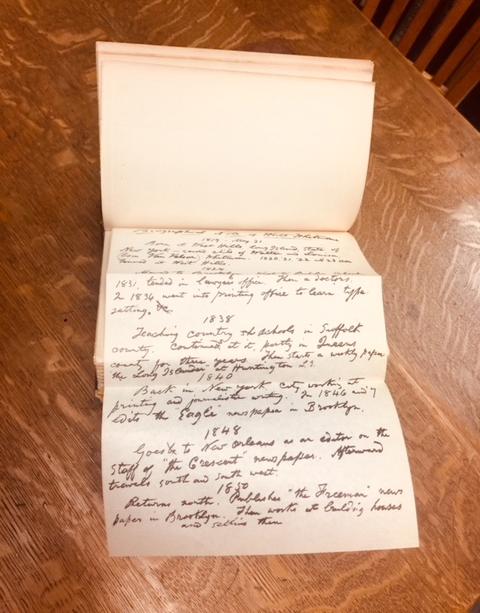 Biographical Note of Walt Whitman
1819 - May 31
Born at West Hills, Long Island, State of
New York - second child of Walter and Louisa
Van Velsor Whitman. 1820, 21, 22 &
at West Hills.
1824
1831, tended in lawyers office. Then a doctors.
In 1834 went into printing office to learn type
setting, &c
1838
Teaching country schools in Suffolk
county. Continued at it, partly in Queens
county for three years. Then starts a weekly paper
the Long Islander at Huntington L.I.
1840
Back in New York city working at
printing and journalistic writing. In 1846 and 7
edits the "Eagle" newspaper in Brooklyn.
1848
Goes to New Orleans as an editor on the
staff of "the Crescent" newspaper. Afterward
travels south and south west.
1850
Returns north. Publishes "the Freeman" news
paper in Brooklyn. Then works at building houses
and selling them